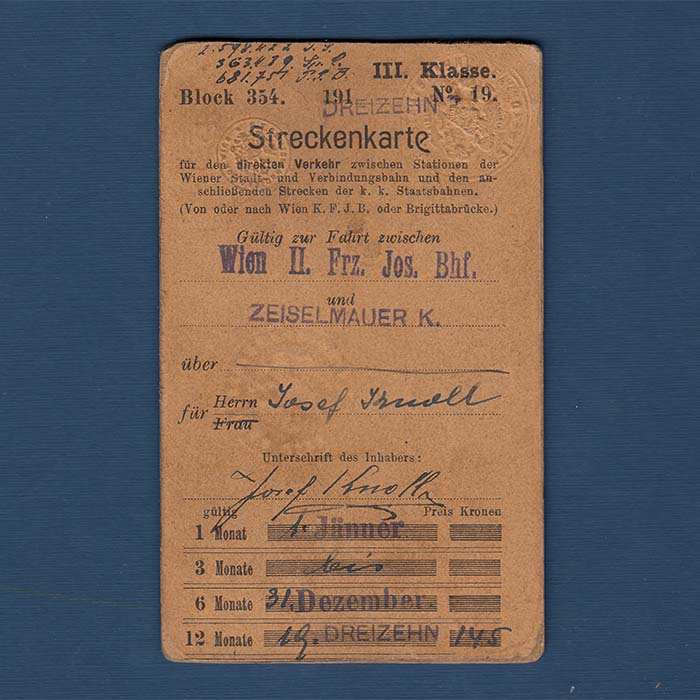 2.598.422 J. J.
363.489 Sp. C.
681.751 P. P. B.
III. Klasse.
Block 354. 191 DREIZEHN No. 19.
Streckenkarte
für den direkten Verkehr zwischen Stationen der
Wiener Stadt- und Verbindungsbahn und den an-
schließenden Strecken der k. k. Staatsbahnen.
(Von oder nach Wien K. F. J. B. oder Brigittabrücke.)
Gültig zur Fahrt zwischen
Wien II. Frz. Jos. Bhf.
und
ZEISELMAUER K.
über
für Herrn Josef Knoll
Frau
Unterschrift des Inhabers:
Josef Knoll
gültig Preis Kronen
1 Monat 1. Jänner.
3 Monate bis
6 Monate 31. Dezember.
12 Monate 19. DREIZEHN 145